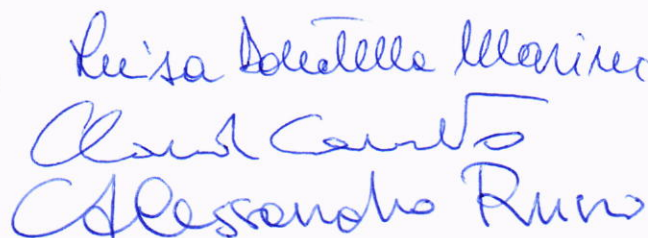 Luisa Donatella Marini
Claud
Alessandro Russo